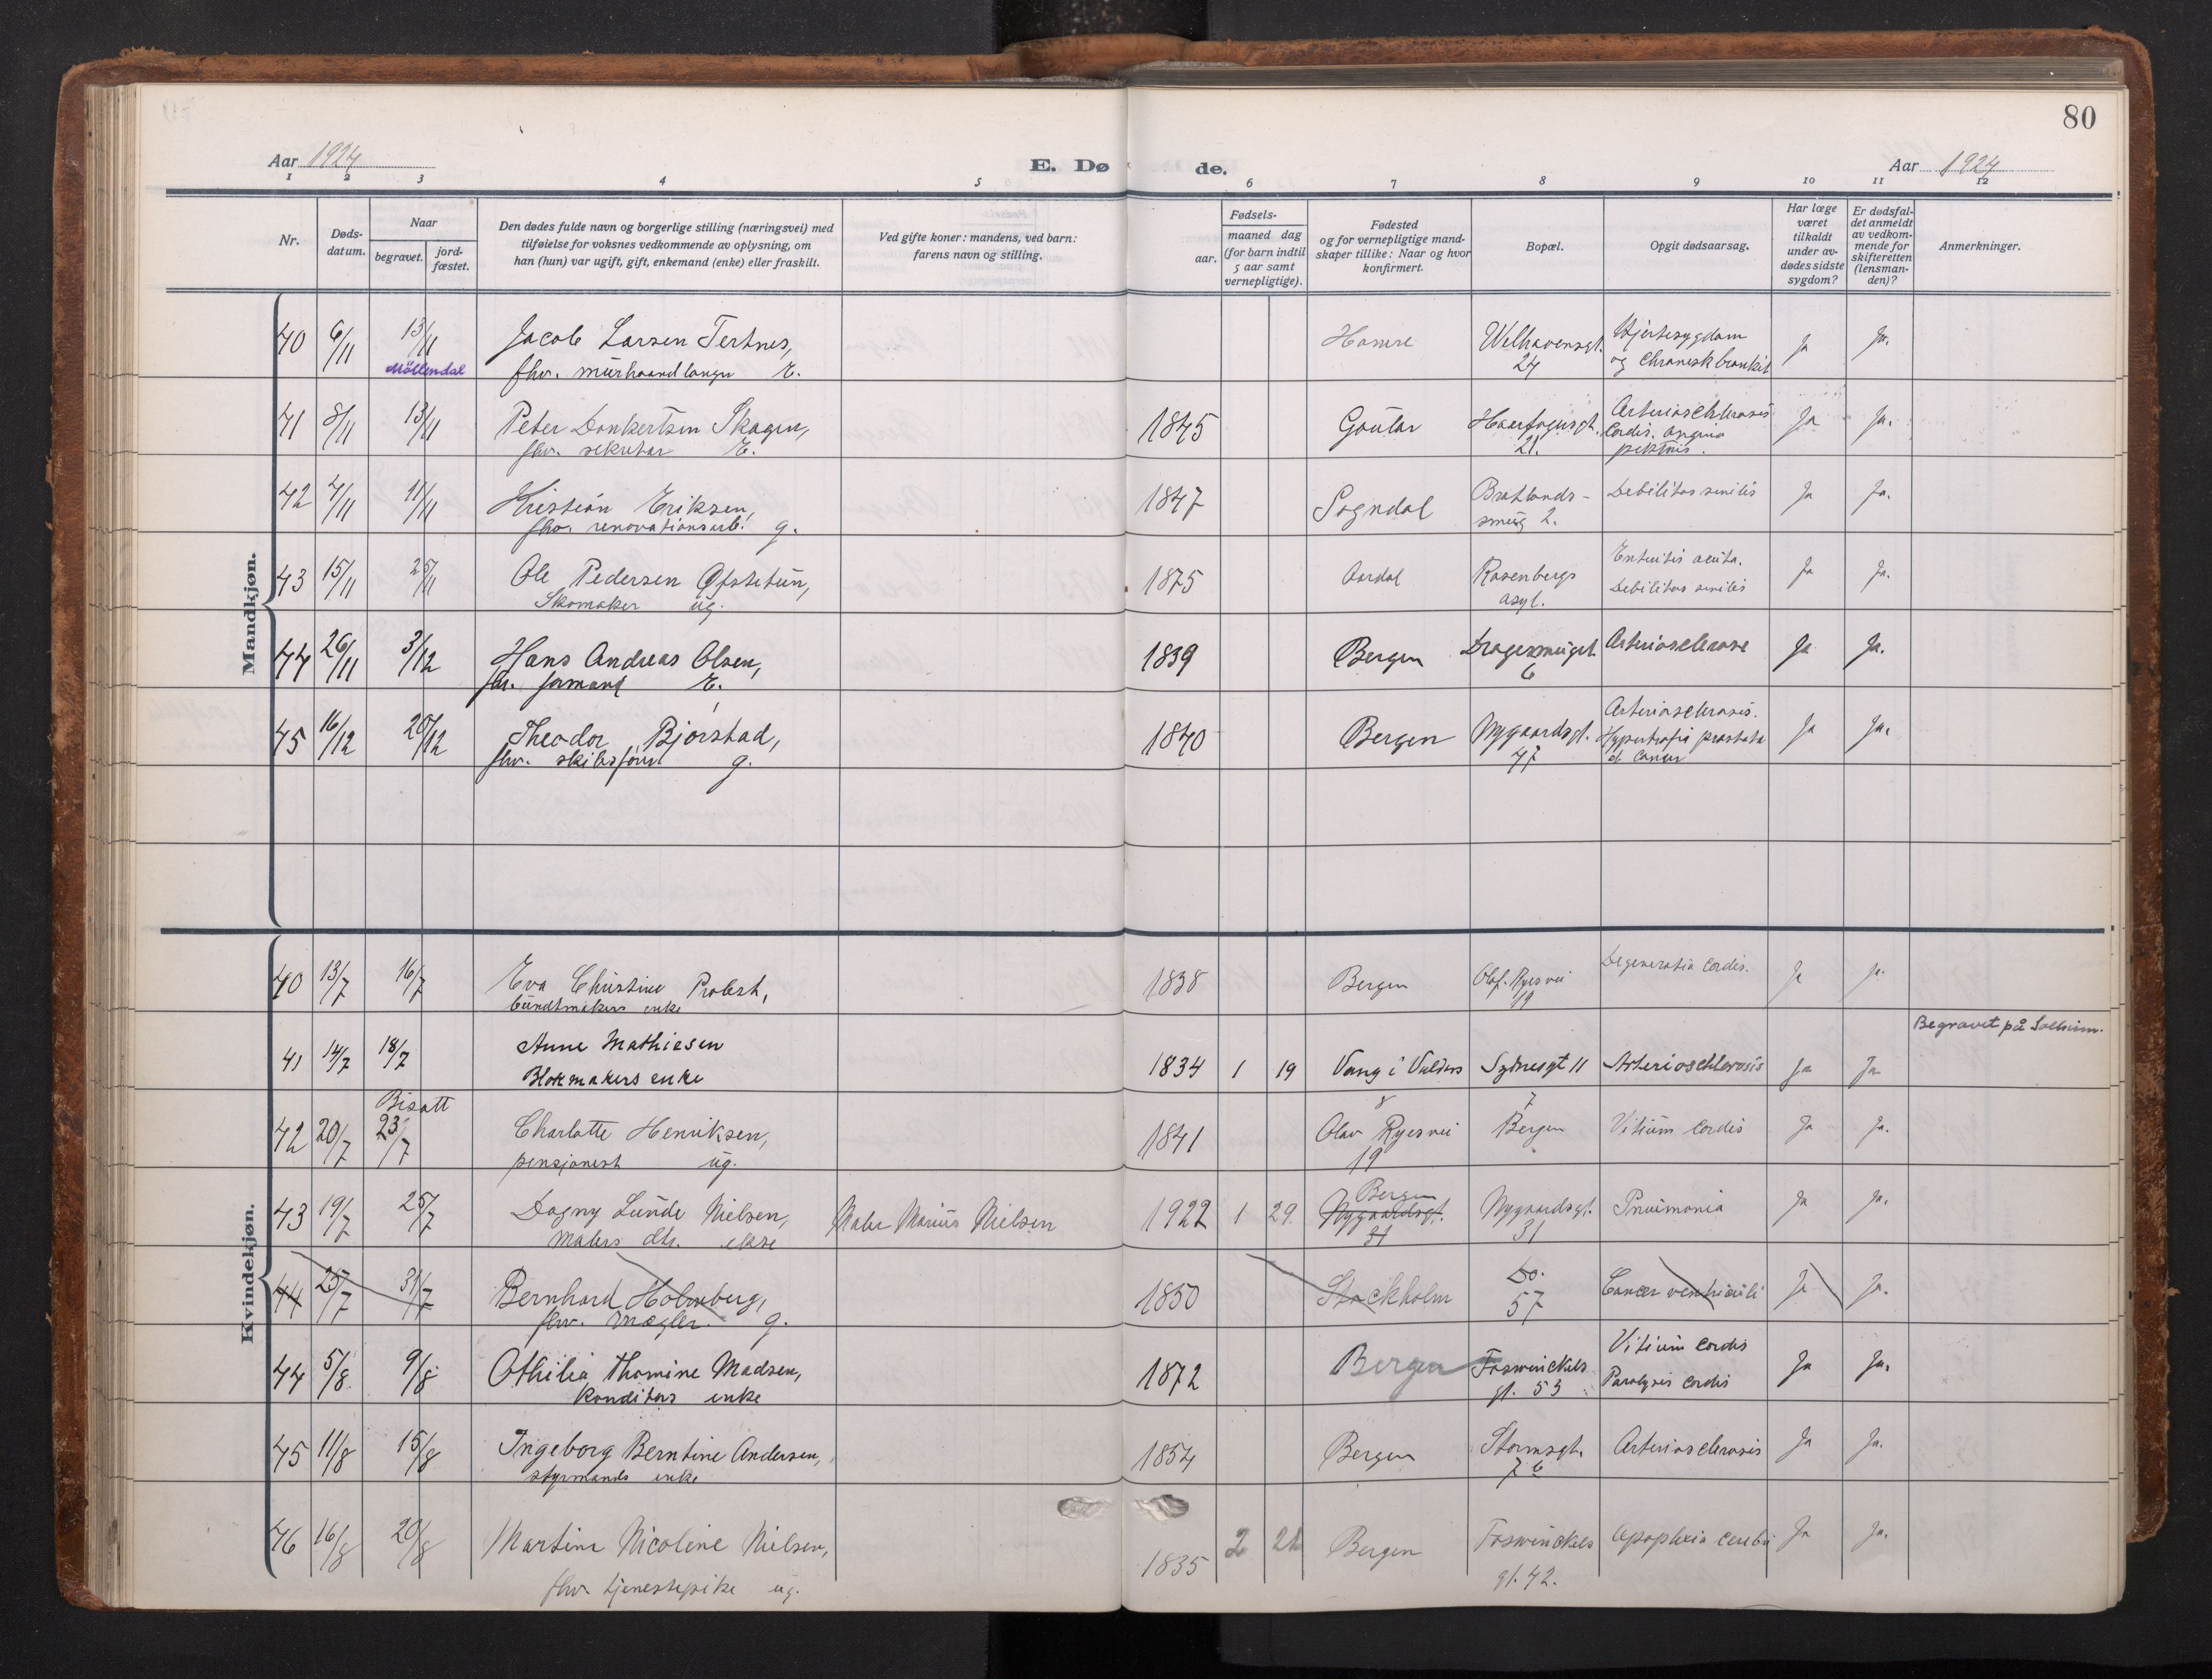 80
Aar 1924
E. Dø
de.
Aar 1924
1 2 3 4 5 6 7 8 9 10 11 12
Nr.
Døds-datum.
Naar
begravet.
jord-fæstet.
Den dødes fulde navn og borgerlige stilling (næringsvei) med
tilføielse for voksnes vedkommende av oplysning, om
han (hun) var ugift, gift, enkemand (enke) eller fraskilt.
Ved gifte koner: mandens, ved barn:
farens navn og stilling.
aar.
Fødsels-
maaned dag
(for barn indtil
5 aar samt
vernepligtige).
Fødested
og for vernepligtige mand-
skaper tillike: Naar og hvor
konfirmert.
Bopæl.
Opgit dødsaarsag.
Har læge
været
tilkaldt
under av-
dødes sidste
sygdom?
Er dødsfal-
det anmeldt
av vedkom-
mende for
skifteretten
(lensman-
den)?
Anmerkninger.
Mandkjøn.
40 6/11 13/11 Jacob Larsen Tertnes, Hamre Welhavensgt. Hjertesygdom Ja Ja.
Möllendal fhv. murhaandlanger E. 24 og Chronisk bronkit
41 8/11 13/11 Peter Donkertsen Skagen, 1845 Goutar Haarfagersgt. Arteriosclerosis Ja Ja.
fhv. sekretær E. 21. Cordis. Angina
pektoris.
42 4/11 11/11 Kristian Eriksen, 1847 Sogndal Bratlands- Debilitas senilis Ja Ja.
fhv. renovationsarb. g. smug 2.
43 15/11 25/11 Ole Pedersen Øfstetun, 1875 Aardal Rosenbergs Enteritis acuta. Ja Ja.
Skomaker ug. asyl. Debilitas senilis
44 26/11 3/12 Hans Andreas Olsen, 1839 Bergen Dragesmuget Arteriosclerose Ja Ja.
fhv. formand E. 6
45 16/12 20/12 Theodor Bjørstad, 1840 Bergen Nygaardsgt. Arteriosclerosis. Ja Ja.
fhv. skibsfører g. 47 Hypertrofia prostata
et Cancer
Kvindekjøn.
40 13/7 16/7 Eva Christine Probst, 1838 Bergen Olaf Ryesvei Degeneratio Cordis. Ja Ja.
bundtmakers enke 19
Begravet på Solheim.
41 14/7 18/7 Anne Mathiesen 1834 1 19 Vang i Valdres Sydnesgt 11 Arterioschlerosis Ja Ja
Blokmakers enke
Bisatt
42 20/7 23/7 Charlotte Henriksen, 1841 Olav Ryesvei Bergen Vitium Cordis Ja Ja.
pensjonist ug. 19
43 19/7 25/7 Dagny Lunde Nielsen, Maler Marius Nielsen 1922 1 29. Bergen Nygaardsgt. Pneumonia Ja Ja.
Malers dtr. ekte Nygaardsgt. 31 31
44 25/7 31/7 Bernhard Holmberg, 1850 Stockholm Do. Cancer ventriculi Ja Ja.
fhv. mægler. g. 57
44 5/8 9/8 Othilia Thomine Madsen, 1872 Bergen Foswinckels Vitium Cordis Ja Ja.
Konditors enke gt. 53 Paralysis Cordis
45 11/8 15/8 Ingeborg Berntine Andersen, 1854 Bergen Stormsgt. Arteriosclerosis Ja Ja.
styrmands enke 7 6
46 16/8 20/8 Martine Nicoline Nielsen, 1835 2 21 Bergen Foswinckels Apoplexia cerebri Ja Ja.
fhv. tjenestepike ug. gt. 42.